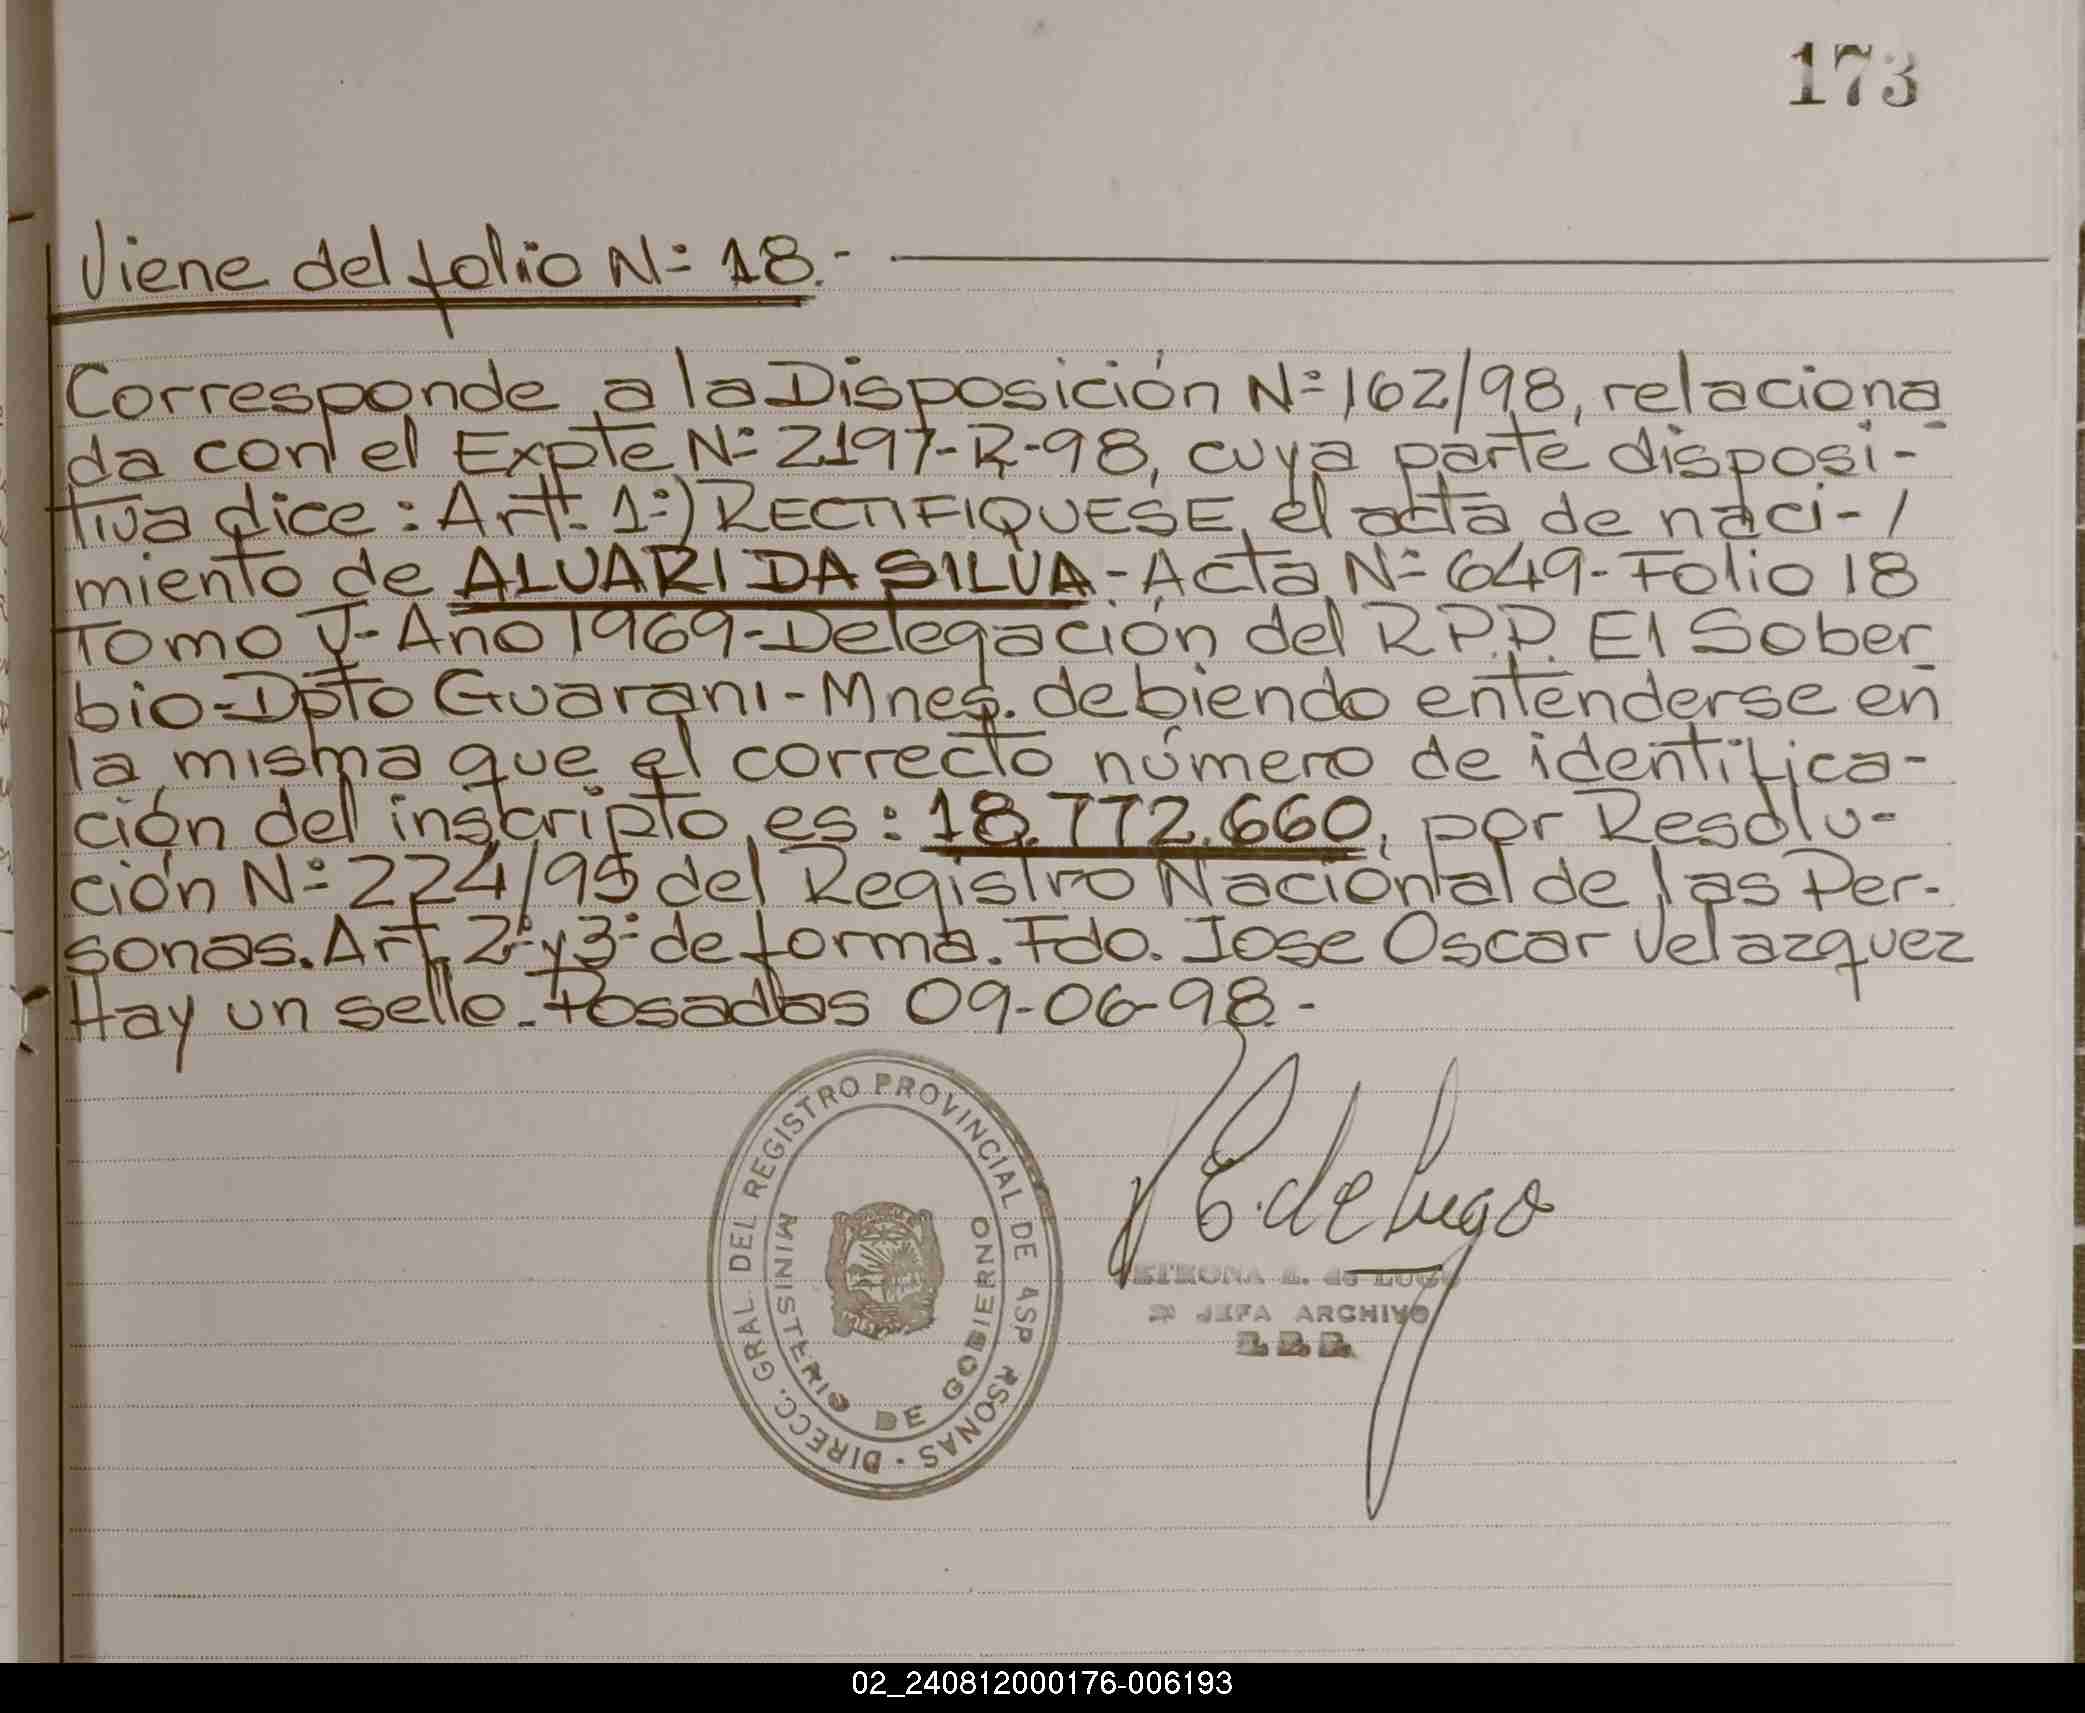 173
Viene del folio Nº 18.-
Corresponde a la Disposición Nº 162/98, relaciona
da con el Expte Nº 2197-R-98, cuya parte disposi-
tiva dice: Art. 1º) RECTIFIQUESE el acta de naci-/
miento de ALVARI DA SILVA - Acta Nº 649 - Folio 18
Tomo V - Año 1969 - Delegación del R.P.P. El Sober
bio - Dpto Guarani - Mnes. debiendo entenderse en
la misma que el correcto número de identifica-
ción del inscripto es: 18.772.660, por Resolu-
ción Nº 224/95 del Registro Nacional de las Per-
sonas. Art. 2º y 3º de forma. Fdo. Jose Oscar Velazquez
Hay un sello. Posadas 09-06-98.-
DIRECC. GRAL. DEL REGISTRO PROVINCIAL DE RSONAS
MINISTERIO DE GOBIERNO
E. de Lugo
ETRONA E. de LUGO
JEFA ARCHIVO
02_240812000176-006193